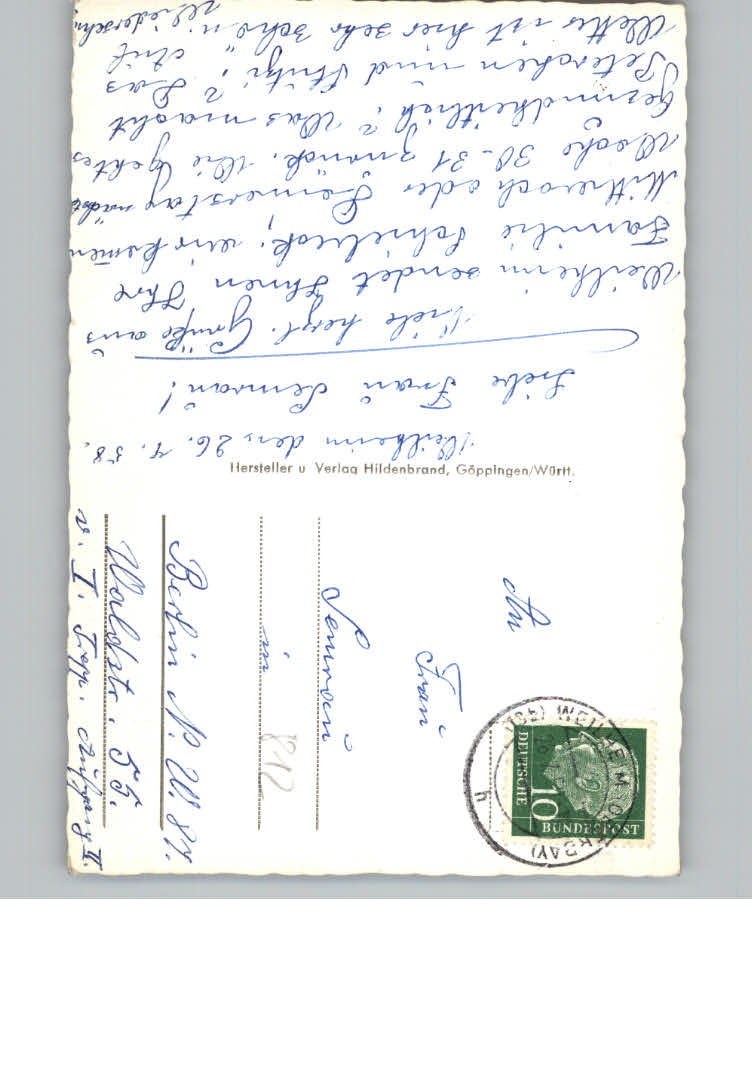 Weilheim den, 26. 7. 58.
Liebe Frau Semrau!
Viele herzl. Grüße aus
Weilheim sendet Ihnen Ihre
Familie Schieback, wir komen
Mittwoch oder Donnerstag nächste
Woche 30-31 zurück. Wie geht es
Gesundheitlich? Was macht
Peterchen und Strizi? Das
Wetter ist hier sehr schön. Auf
Wiedersehn
Hersteller u Verlag Hildenbrand, Göppingen/Württ.
An
Frau
Semrau
in
Berlin N. W. 87.
Waldstr. 55.
v. I. Trepp. Aufgang II.
DEUTSCHE
BUNDESPOST
10
WEILHEIM (OBERBAY)
h